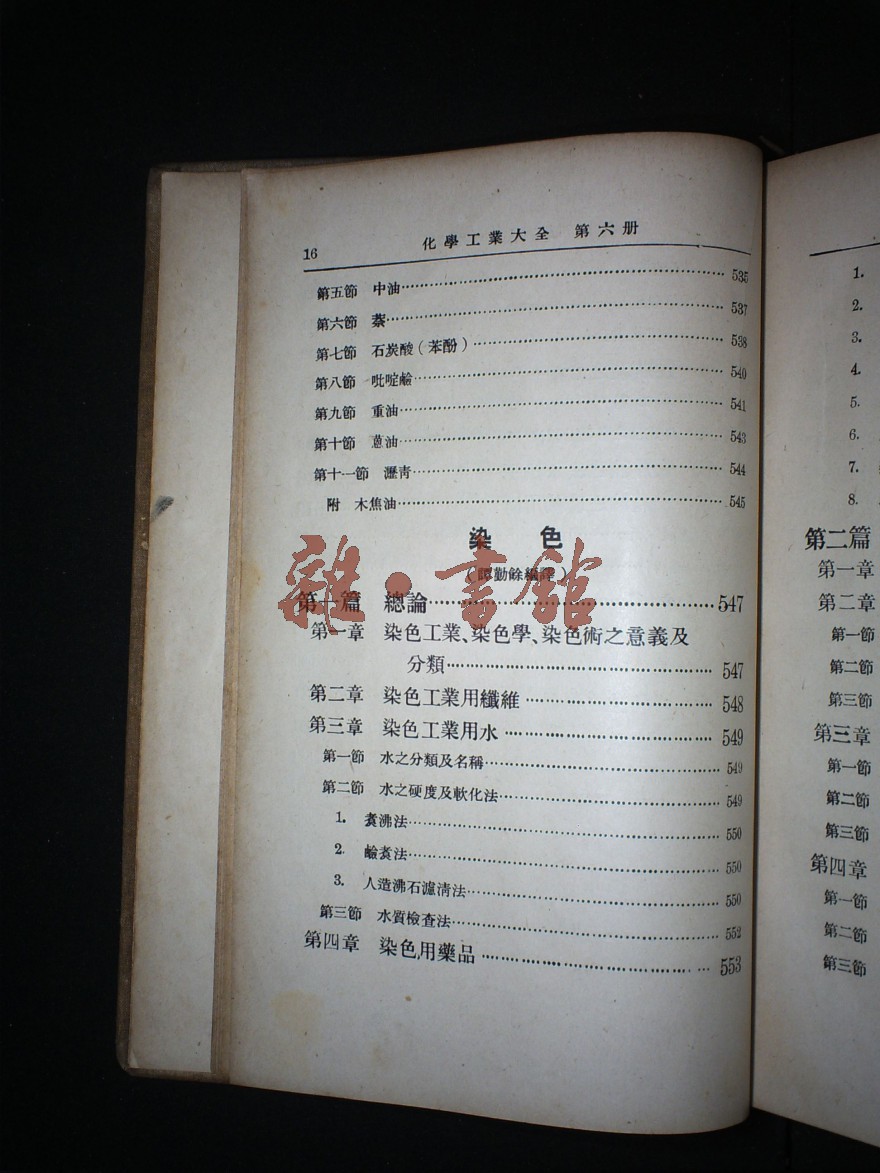 16
化學工業大全 第六册
第五節 中油 535
第六節 萘 537
第七節 石炭酸(苯酚) 538
第八節 吡啶鹼 540
第九節 重油 541
第十節 蒽油 543
第十一節 瀝青 544
附 木焦油 545
染色
(譚勤餘編譯)
第一篇 總論 547
第一章 染色工業、染色學、染色術之意義及
分類 547
第二章 染色工業用纖維 548
第三章 染色工業用水 549
第一節 水之分類及名稱 549
第二節 水之硬度及軟化法 549
1. 煑沸法 550
2. 鹼煑法 550
3. 人造沸石濾清法 550
第三節 水質檢查法 552
第四章 染色用藥品 553
雜·書館
1.
2.
3.
4.
5.
6.
7.
8.
第二篇
第一章
第二章
第一節
第二節
第三節
第三章
第一節
第二節
第三節
第四章
第一節
第二節
第三節